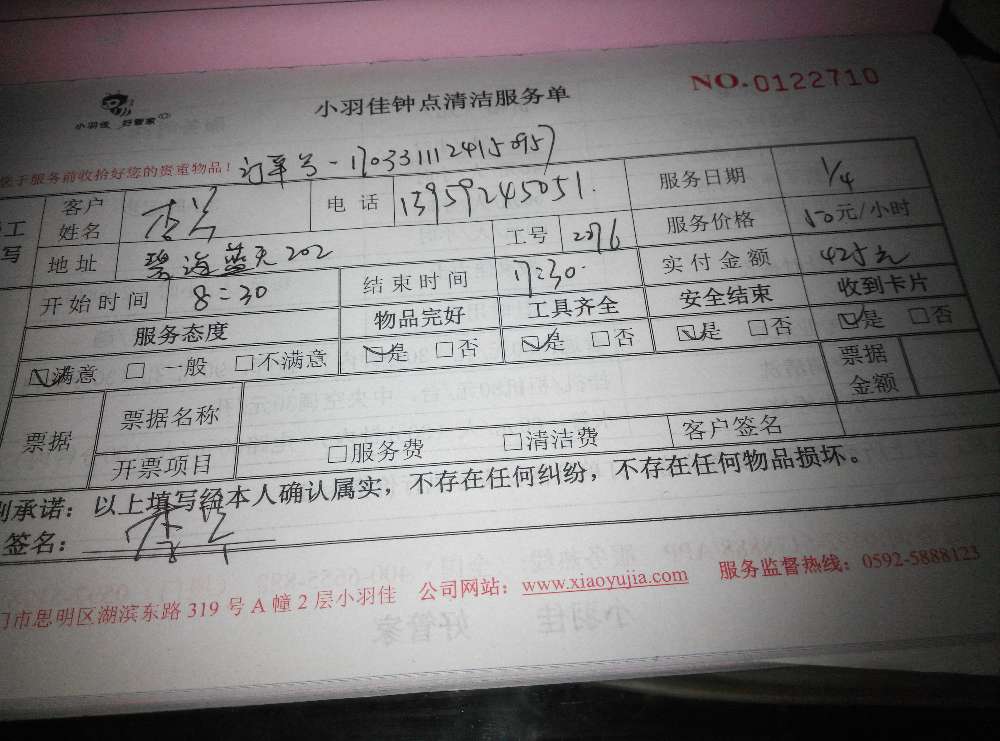 小羽佳 好管家
小羽佳钟点清洁服务单
NO.0122710
于服务前收拾好您的贵重物品！ 订单号-1703311124150957
工 客户姓名 电话 13959245051. 服务日期 1/4
写 地址 碧海蓝天202 工号 服务价格 50元/小时
开始时间 8:30 结束时间 17:30. 实付金额 425元
服务态度 物品完好 工具齐全 安全结束 收到卡片
☑满意 □一般 □不满意 ☑是 □否 ☑是 □否 ☑是 □否 ☑是 □否
票据 票据名称 票据金额
开票项目 □服务费 □清洁费 客户签名
承诺：以上填写经本人确认属实，不存在任何纠纷，不存在任何物品损坏。
签名：
门市思明区湖滨东路 319 号 A 幢 2 层小羽佳 公司网站：www.xiaoyujia.com 服务监督热线：0592-5888123